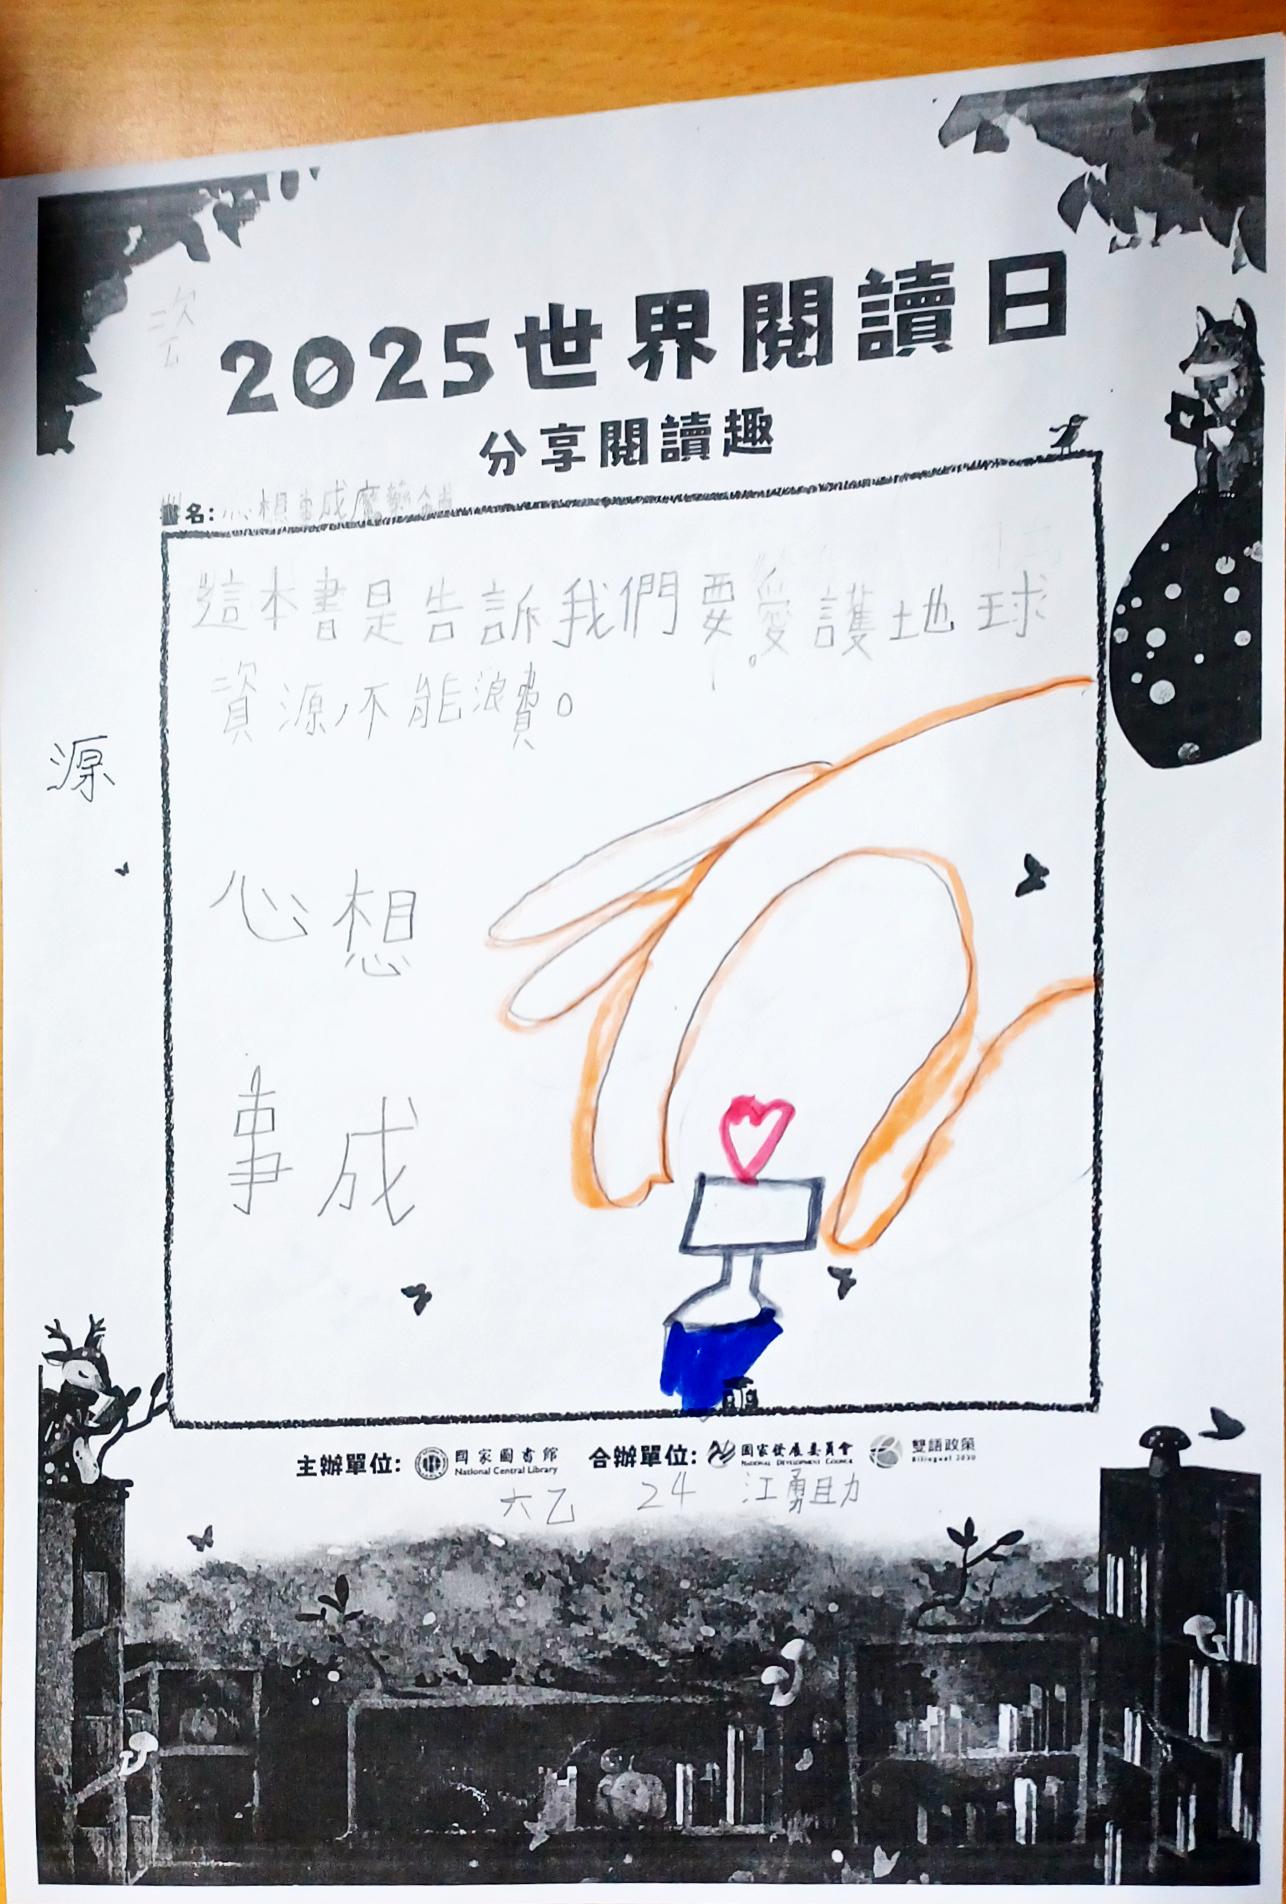 2025世界閱讀日
分享閱讀趣
書名：心想事成魔藥
這本書是告訴我們要愛護地球
資源不能浪費。
源
心想
事成
主辦單位: 國家圖書館 National Central Library 合辦單位: 國家發展委員會 National Development Council 雙語政策 Bilingual 2030
六乙 24 江勇助